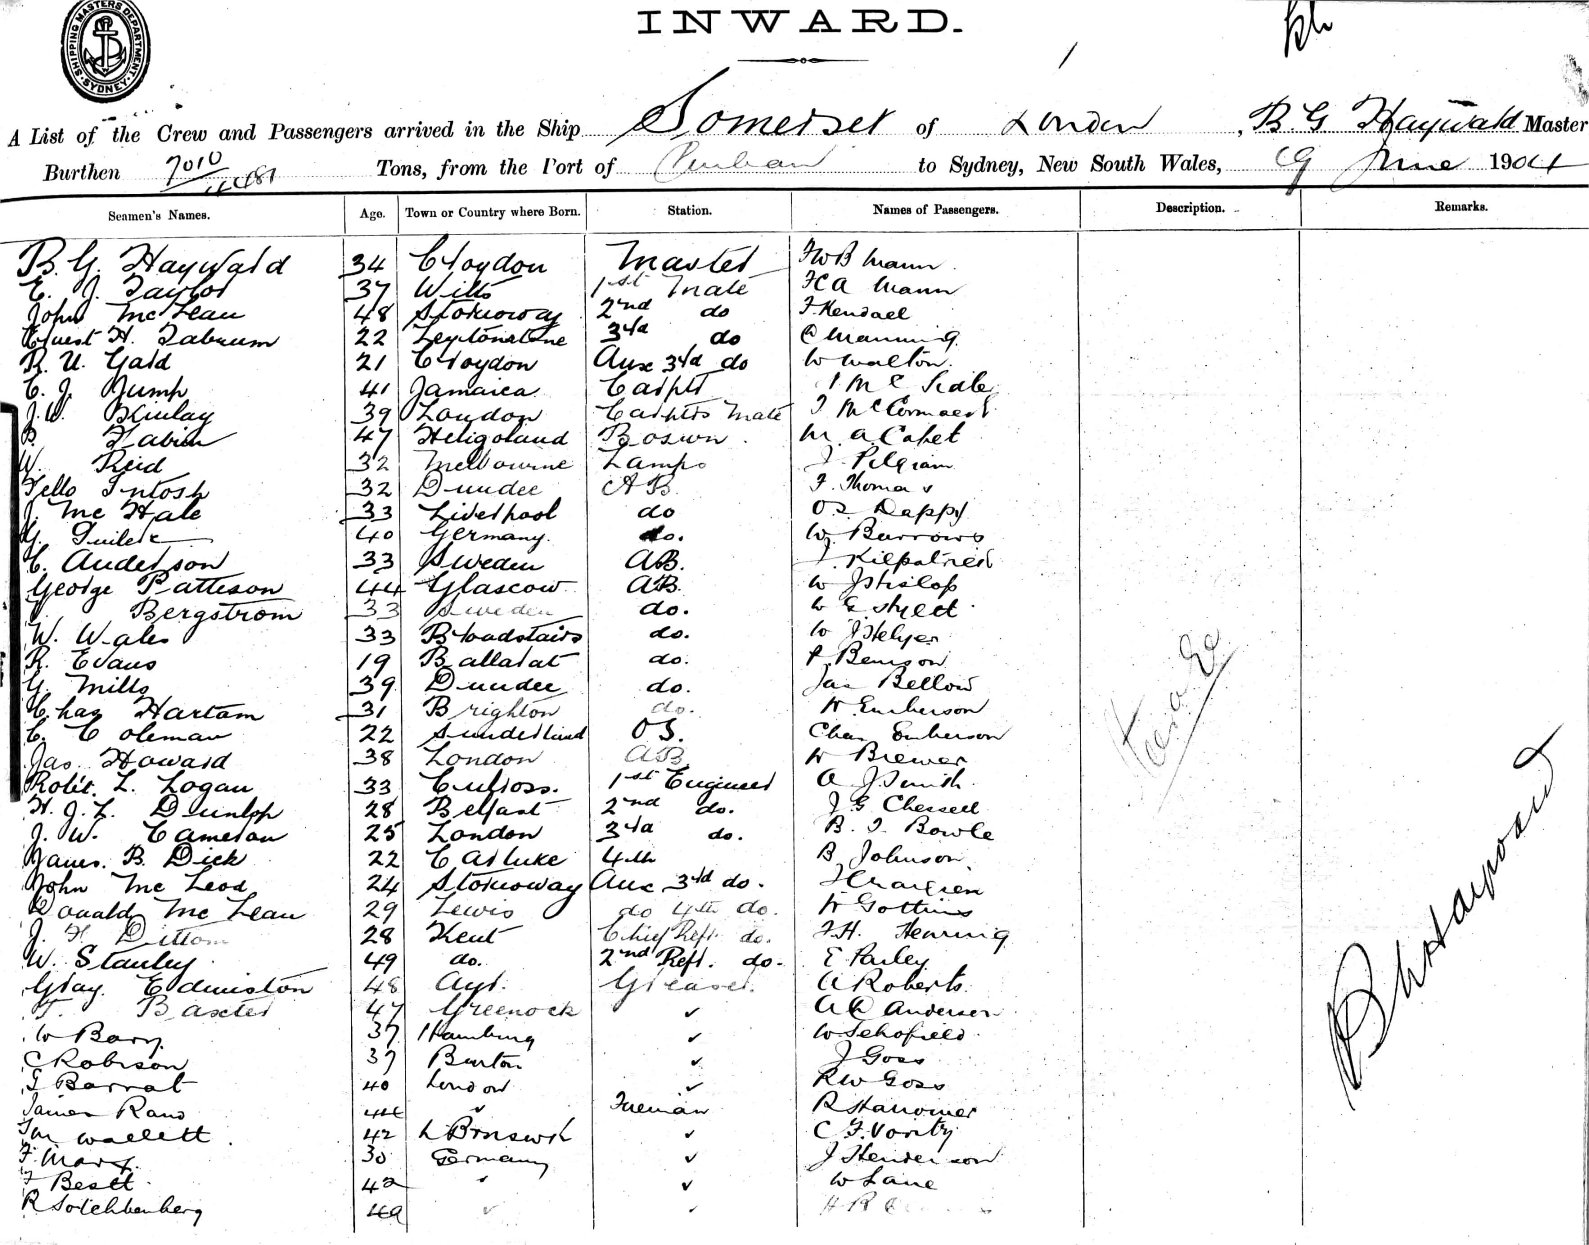 SHIPPING MASTERS DEPARTMENT. SYDNEY.
INWARD.
A List of the Crew and Passengers arrived in the Ship Somerset of London, B. G. Hayward Master
Burthen 7010 Tons, from the Port of Durban to Sydney, New South Wales, 9 June 1904
Seamen's Names. Age. Town or Country where Born. Station. Names of Passengers. Description. Remarks.
B. G. Hayward 34 Croydon Master F W B Mann
E. J. Taylor 37 Wilts 1st Mate F C A Mann
John McLean 48 Stornoway 2nd do F. Kendall
Ernest H. Tabrum 22 Leytonstone 3rd do C Manning
R. U. Gard 21 Croydon Aux 3rd do W Walton
C. J. Jump 41 Jamaica Carptr
J. W. 39 London Carptrs Mate J McCormack
47 Heligoland Bosun M. A. Capet
W. Reid 32 Melbourne Lamps J Pilgrim
Intosh 32 Dundee AB F. Thomas
J. McHale 33 Liverpool do Dappy
G. 40 Germany. do. W. Burrows
C. Anderson 33 Sweden AB. J. Kilpatrick
George Patterson 44 Glascow AB. W J Hislop
Bergstrom 33 Sweden do. W E
W. Wales 33 Broadstairs do. W J Helyer
R. Evans 19 Ballarat do. P. Benson
G. Mills 39 Dundee do. Jas Bellow
Chas Hartam 31 Brighton do. W. Emberson
C. Coleman 22 Sunderland O S. Chas Emberson
Jas. Howard 38 London AB W Brewer
Robt. L. Logan 33 Culross. 1st Engineer A J. Smith
H. J. L. Dunlop 28 Belfast 2nd do. J G
J. W. Cameron 25 London 3rd do. B. J. Bowle
James. B. Dick 22 Carluke 4th B Johnson
John McLeod 24 Stornoway Aux 3rd do.
Donald McLean 29 Lewis do 4th do. W Gottins
J. H Dittom 28 Kent Chief Refr. do. F. H. Henning
W. Stanley 49 do. 2nd Refr. do. E Parley
Gray. Edmiston 48 Ayr. Greaser. A Roberts.
Baxter 47 Greenock ✓ A C Anderson
W Barry 37 Hamburg ✓ W Schofield
C Robison 37 Burton ✓ J Goss
Barrat 40 London ✓ R W Goss
James Rand 44 ✓ Fireman R Stanomer
Wallett 42 ✓ C F. Vanty
F. Marx. 30 Germany ✓ J Henderson
Beselt 42 ✓ ✓ W Lane
R 49 ✓ ✓
B G Hayward